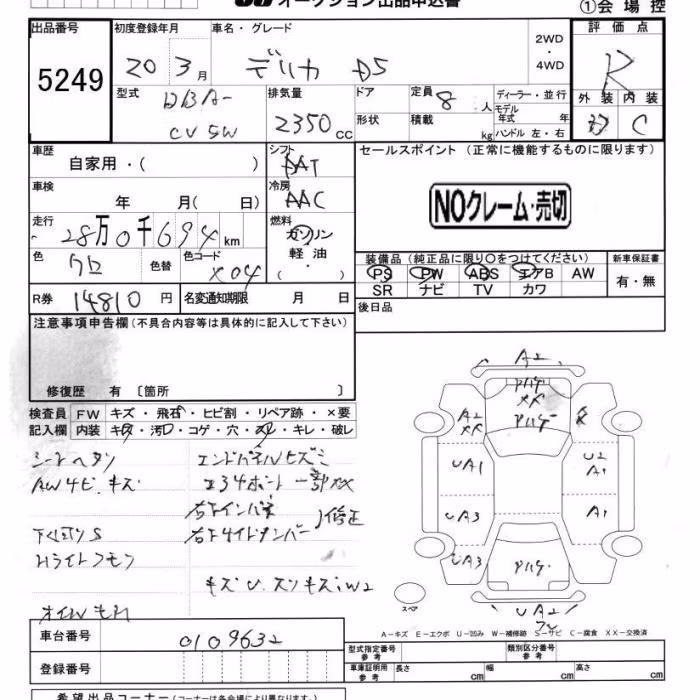 オークション出品申込書
①会場控
出品番号 初度登録年月 車名・グレード 評価点
5249 20 3月 デリカ D5 2WD・4WD R
型式 排気量 ドア 定員 ディーラー・並行 外装 内装
DBA- CV5W 2350cc 形状 8人 積載 kg モデル年式 年 ハンドル 左・右 C
車歴 シフト セールスポイント (正常に機能するものに限ります)
自家用・( )
車検 冷房
年 月( 日) AAC
NOクレーム・売切
走行 燃料
28万0千694km ガソリン・軽油・( )
装備品(純正品に限り○をつけてください) 新車保証書
色 クロ 色替 色コード X04
PS PW ABS エアB AW 有・無
SR ナビ TV カワ
R券 14810円 名変通知期限 月 日
後日品
注意事項申告欄(不具合内容等は具体的に記入して下さい)
修復歴 有〔箇所 〕
検査員 FW キズ・飛石・ヒビ割・リペア跡・×要
記入欄 内装 キズ・汚レ・コゲ・穴・スレ・キレ・破レ
シートヘタリ エンドパネルヒズミ
AW4ピ、キズ
下廻りS
Hライトクモリ
キズU、スリキズ、W2
オイルモレ
A2
A2 XX
XX
UA1
U2 A1
UA3
A1
UA3
UA2
スペア
A-キズ E-エクボ U-凹み W-補修跡 S-サビ C-腐食 XX-交換済
車台番号 0109632
型式指定番号 参考 類別区分番号 参考
登録番号 車庫証明用 参考 長さ cm 幅 cm 高さ cm
希望出品コーナー(コーナーは各会場により異なります)